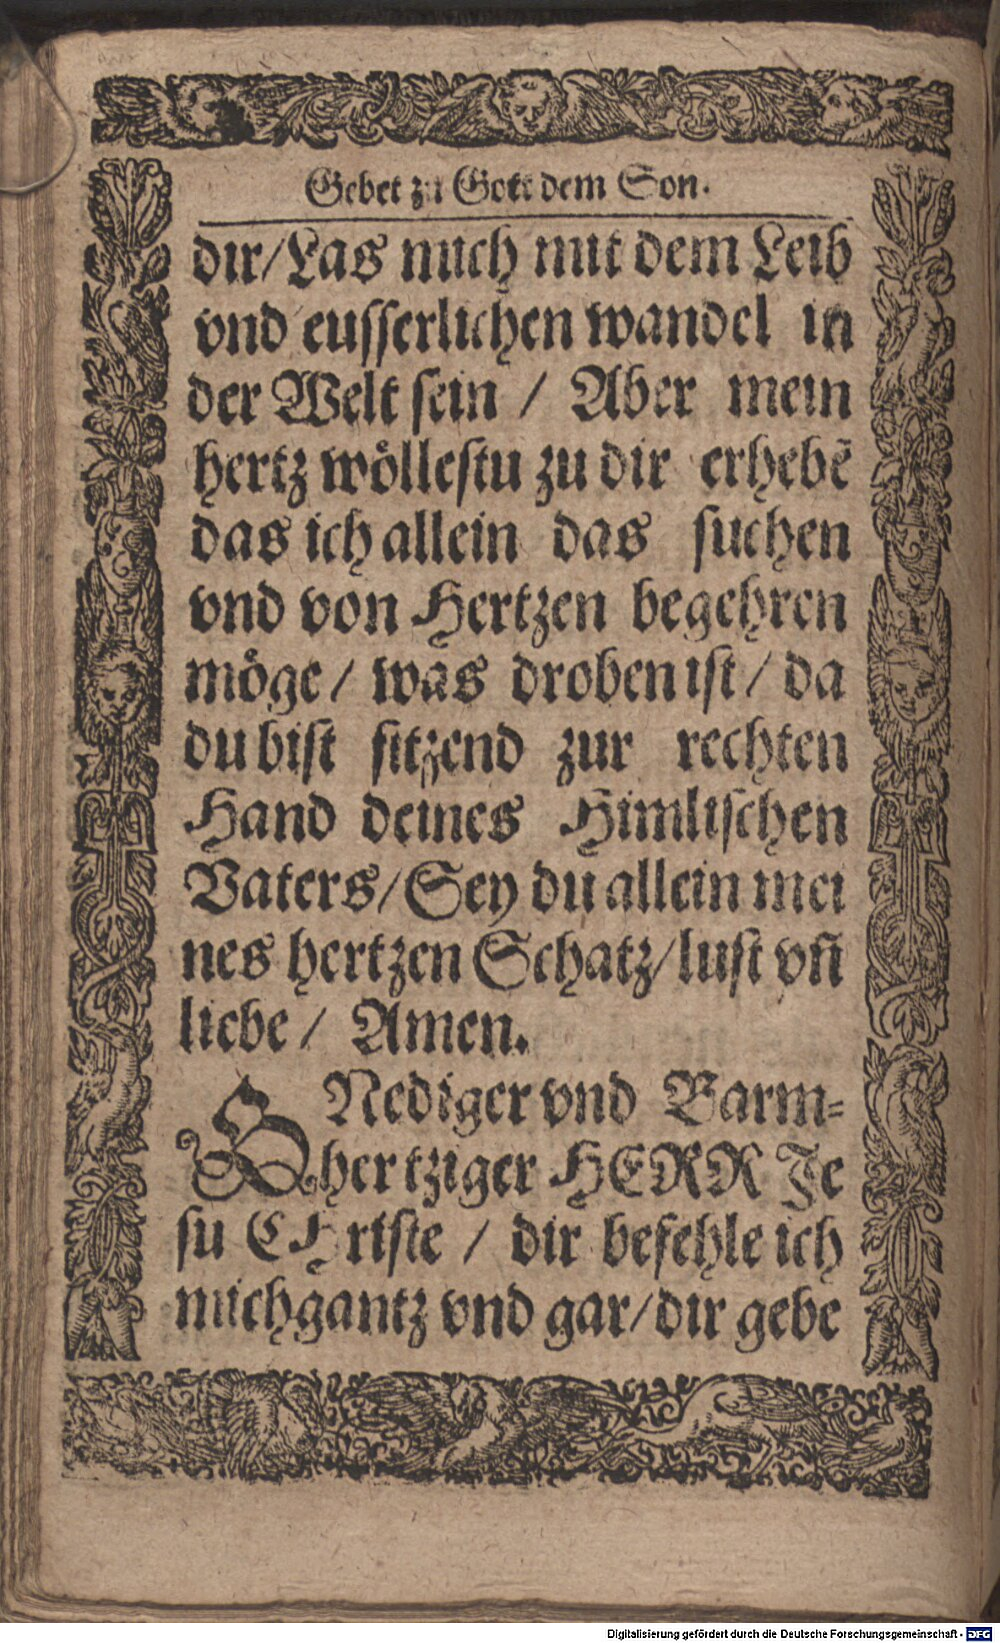 Gebet zu Gott dem Son.
dir/Las mich mit dem Leib
vnd eusserlichen wandel in
der Welt sein / Aber mein
hertz wöllestu zu dir erhebẽ
das ich allein das suchen
vnd von Hertzen begehren
möge / was droben ist / da
du bist sitzend zur rechten
Hand deines Himlischen
Vaters/Sey du allein mei
nes hertzen Schatz/lust vñ
liebe / Amen.
GNediger vnd Barm=
hertziger HERR Je
su CHriste / dir befehle ich
mich gantz vnd gar/dir gebe
Digitalisierung gefördert durch die Deutsche Forschungsgemeinschaft - DFG